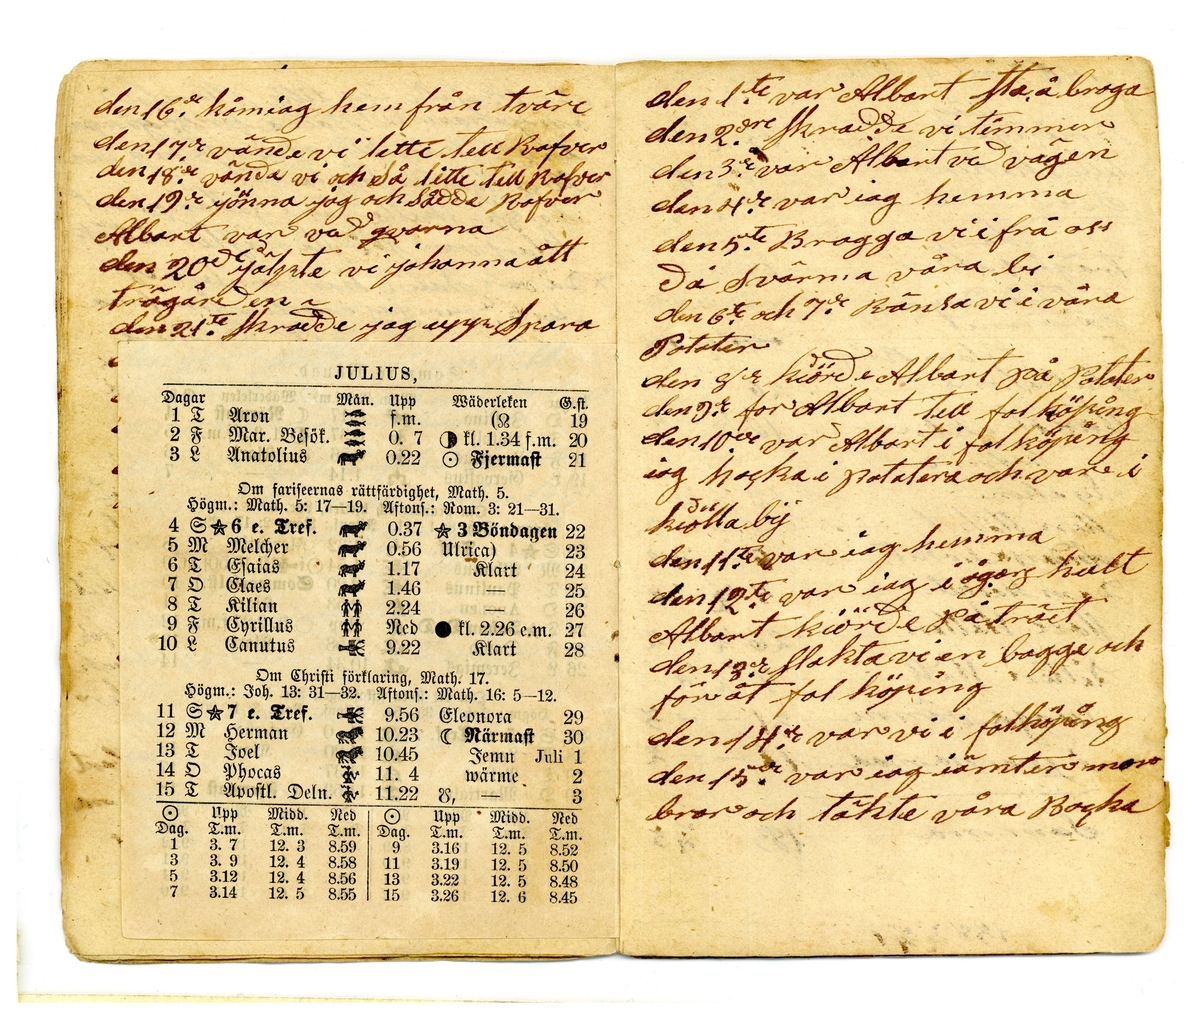 den 16de kom iag hem från tväre
den 17de vände vi lette tell Rafver
den 18de vända vi och Så litte till Rafver
den 19de jönna jag och Sådde Rafver
Albart var ved qvarna
den 20de jälpte vi johannaått
trägården
den 21te Skrædde jag upp Spara
JULIUS,
Dagar Mån. Upp Wäderleken G.st.
1 T Aron f.m. (☊ 19
2 F Mar. Besök. 0. 7 ◑ kl. 1.34 f.m. 20
3 L Anatolius 0.22 ☉ Fjermast 21
Om fariseernas rättfärdighet, Math. 5.
Högm.: Math. 5: 17—19. Aftons.: Rom. 3: 21—31.
4 S ★ 6 e. Tref. 0.37 ★ 3 Böndagen 22
5 M Melcher 0.56 Ulrica) 23
6 T Esaias 1.17 Klart 24
7 O Claes 1.46 — 25
8 T Kilian 2.24 — 26
9 F Cyrillus Ned ● kl. 2.26 e.m. 27
10 L Canutus 9.22 Klart 28
Om Christi förklaring, Math. 17.
Högm.: Joh. 13: 31—32. Aftons.: Math. 16: 5—12.
11 S ★ 7 e. Tref. 9.56 Eleonora 29
12 M Herman 10.23 ☾ Närmast 30
13 T Joel 10.45 Jemn Juli 1
14 O Phocas 11. 4 wärme 2
15 T Apostl. Deln. 11.22 ☋, — 3
☉ Upp Midd. Ned ☉ Upp Midd. Ned
Dag. T.m. T.m. T.m. Dag. T.m. T.m. T.m.
1 3. 7 12. 3 8.59 9 3.16 12. 5 8.52
3 3. 9 12. 4 8.58 11 3.19 12. 5 8.50
5 3.12 12. 4 8.56 13 3.22 12. 5 8.48
7 3.14 12. 5 8.55 15 3.26 12. 6 8.45
den 1te var Albart sta å braga
den 2dre Skrædde vi timmer
den 3de var Albart ved vägen
den 4de var iag hemma
den 5te Bragga vi ifrå oss
då Svärma våra bi
den 6te och 7de Ränsa vi i våra
Potater
den 8de kiörde Albart på Potater
den 9de for Albart tell falköping
den 10de var Albart i falköping
iag hacka i potatera och vare i
kiölla by
den 11te var iag hemma
den 12te var iag i ågarp hult
Albart kiörde på träit
den 13de Slakta vi en bagge och
för åt falköping
den 14de var vi i falköping
den 15de var iag iämter mor
bror och täkte våra Backa